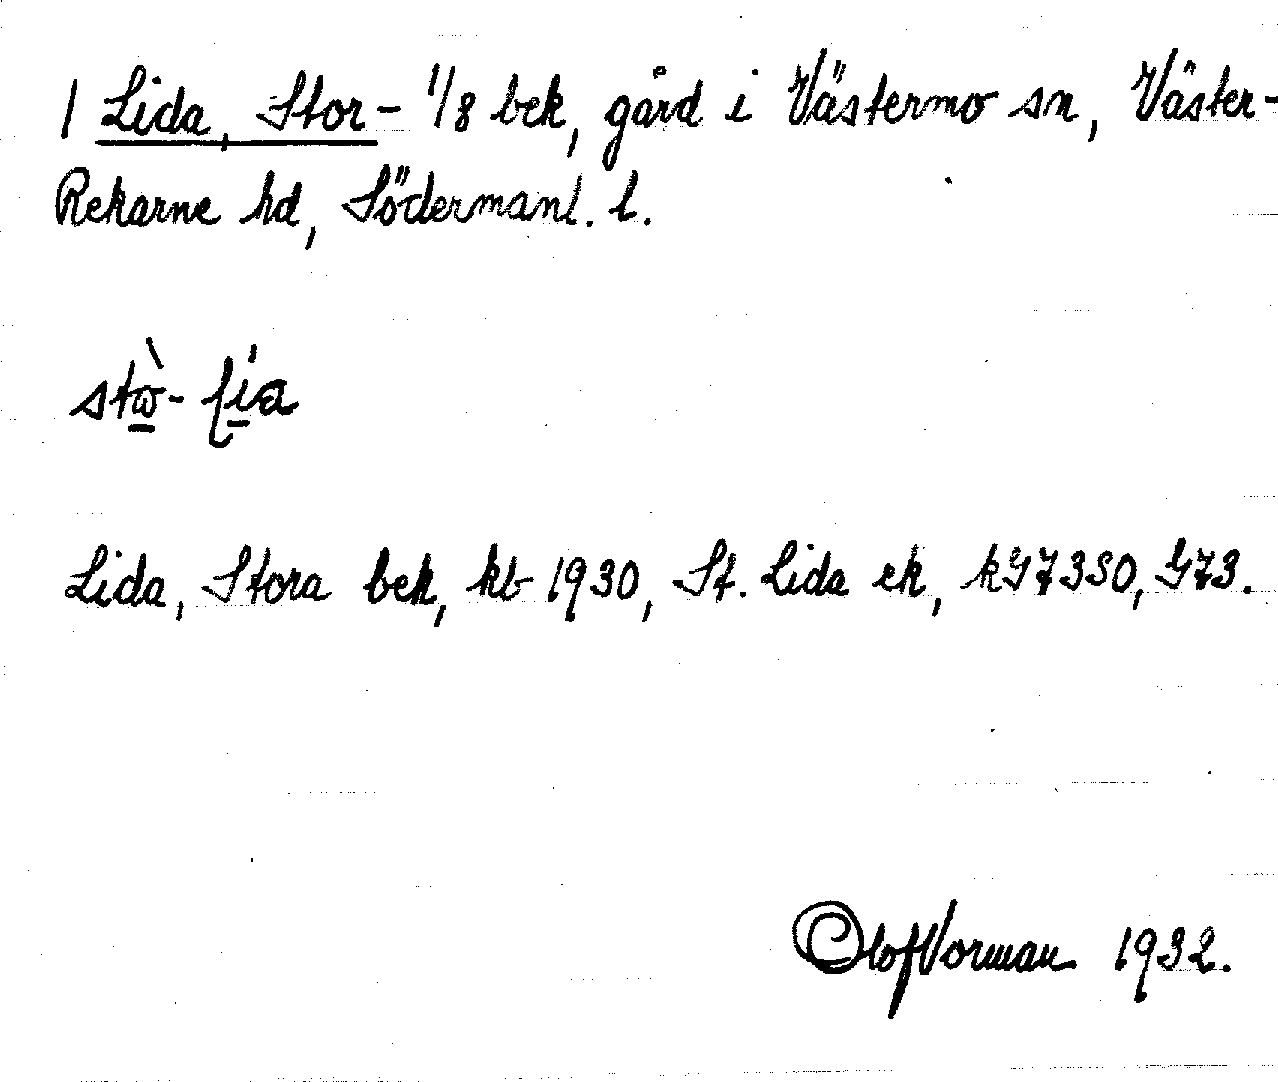 1 Lida, Stor- 1/8 bek, gård i Västermo sn, Väster-
Rekarne hd, Södermanl. l.
Lida, Stora bek, kb 1930, St. Lida ek, kG 73 SO, G 73.
Olof Vorman 1932.